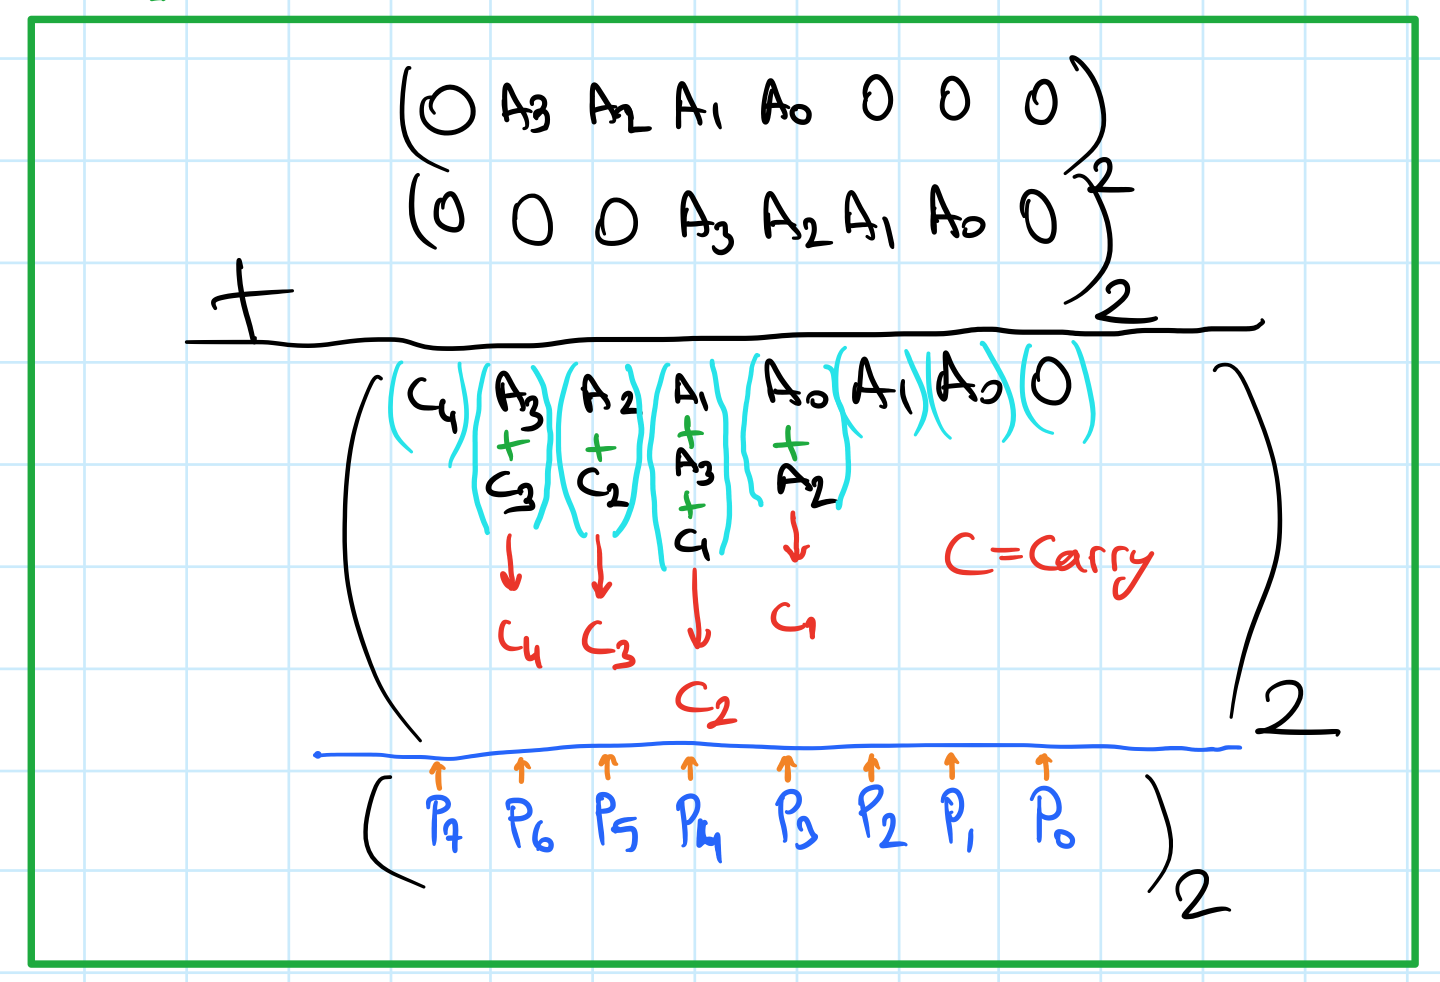 (0 A3 A2 A1 A0 0 0 0)2
(0 0 0 A3 A2 A1 A0 0)2
+
( (C4) (A3 (A2 (A1 (A0 (A1) (A0) (0) )2
+ + + +
C3) C2) A3 A2)
+
C1)
C4 C3 C2 C1
C=Carry
(P7 P6 P5 P4 P3 P2 P1 P0)2